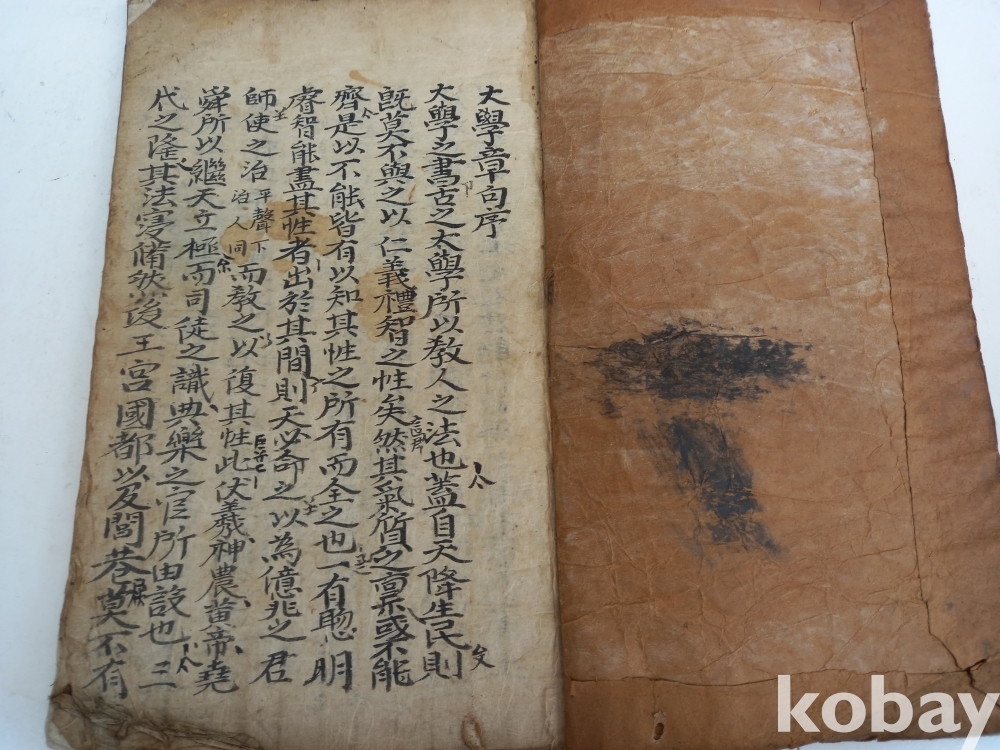 大學章句序
大學之書古之太學所以敎人之法也蓋自天降生民則
旣莫不與之以仁義禮智之性矣然其氣質之稟或不能
齊是以不能皆有以知其性之所有而全之也一有聰明
睿智能盡其性者出於其間則天必命之以為億兆之君
師使之治平聲下治人同而敎之以復其性此伏羲神農黃帝堯
舜所以繼天立極而司徒之職典樂之官所由設也三
代之隆其法寖備然後王宮國都以及閭巷莫不有
kobay